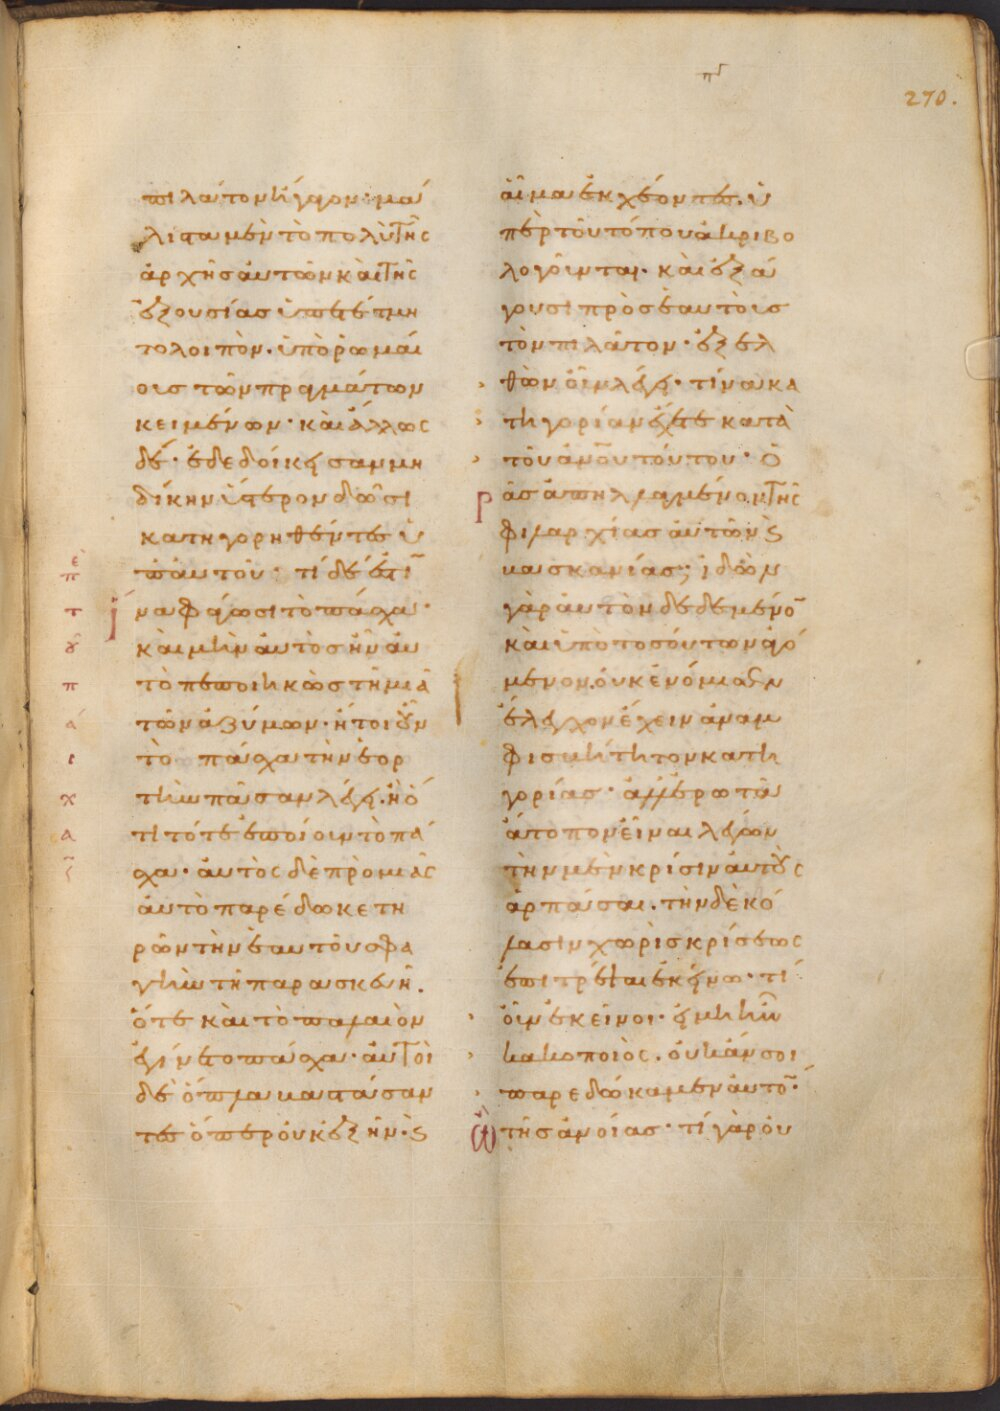 πγ
270.
πιλάτον ἦγον· μά
λιστα μὲν τὸ πολὺ τῆς
ἀρχῆς αὐτῶν καὶ τῆς
ἐξουσίας ὑπετέτμη
το λοιπὸν. ὑπὸ ῥωμαί
οις τῶν πραγμάτων
κειμένων· καὶ ἄλλως
δέ· ἐδεδοίκεισαν μὴ
δίκην ὕστερον δῶσι
κατηγορηθέντες ὑ
π' αὐτοῦ· τί δέ ἐστῑ
ἵνα φάγωσι τὸ πάσχα·
καὶ μὴν αὐτὸς ἦν αὐ
τὸ πεποιηκὼς τῇ μιᾶ
τῶν ἀζύμων· ἤτοι οὖν
τὸ πάσχα τὴν ἑορ
τὴν πᾶσαν λέγει. ἢ ὅ
τι τότε ἐποίουν τὸ πά
σχα· αὐτὸς δὲ πρὸ μιᾶς
αὐτὸ παρέδωκε τη
ρῶν τὴν ἑαυτοῦ σφα
γὴν τῇ παρασκευῇ.
ὅτε καὶ τὸ παλαιὸν
ἐγίνετο πάσχα· αὐτοὶ
δὲ ὅπλα βαστάσαν
τες ὅπερ οὐκ ἐξῆν· ϗ
ἐπὶ
τ
οῦ
π
ά
ς
χ
α
ς
αἷμα ἐκχέοντες. ὑ
πὲρ τοῦ τόπου ἀκριβο
λογοῦνται· καὶ ἐξά
γουσι πρὸς ἑαυτοὺς
τὸν πιλάτον· ἐξελ
θὼν οὖν λέγει· τίνα κα
τηγορίαν ἔχετε κατὰ
τοῦ ἀν̅ου τούτου· ὁ
ρᾶς ἀπηλλαγμένον τῆς
φιλαρχίας αὐτῶν ϗ
βασκανίας; ἰδὼν
γὰρ αὐτὸν δεδεμένο̅
καὶ ὑπὸ τοσούτων ἀγό
μενον. οὐκ ἐνόμισεν
ἔλεγχον ἔχειν ἀναμ
φισβήτητον κατη
γορίας· ἀλλ' ἐρωτᾶ
ἄτοπον εἶναι λέγων
τὴν μὲν κρίσιν αὐτοὺς
ἁρπάσαι. τὴν δὲ κό
λασιν χωρὶς κρίσεως
ἐπιτρέψαι ἐκείνω· τί
οὖν ἐκεῖνοι· εἰ μὴ ἦν
κακοποιὸς. οὐκ ἄν σοι
παρεδώκαμεν αὐτό̅·
ὢ τῆς ἀνοίας· τί γὰρ οὐ